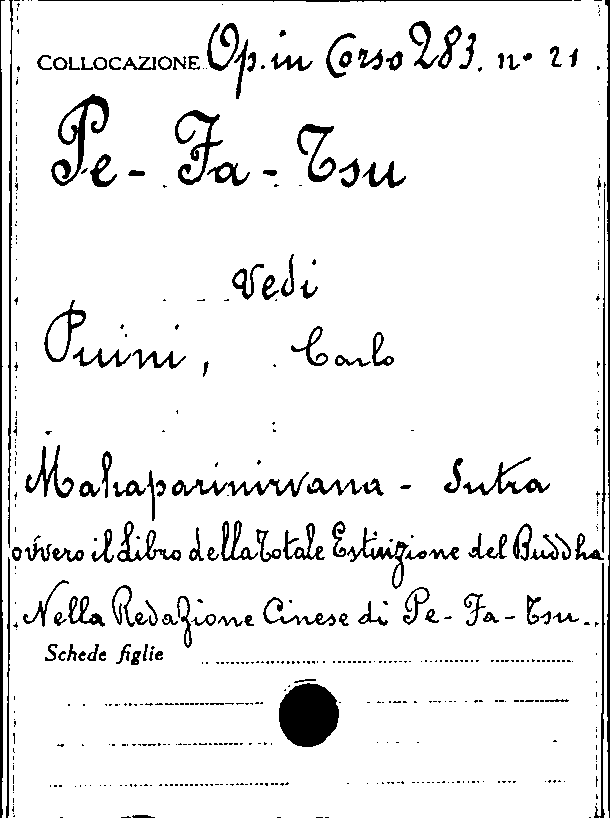 COLLOCAZIONE Op. in Corso 283. n° 21
Pe - Fa - Tsu
Vedi
Puini, Carlo
Mahaparinirvana - Sutra
ovvero il Libro della Totale Estinzione del Buddha
Nella Redazione Cinese di Pe - Fa - Tsu.
Schede figlie